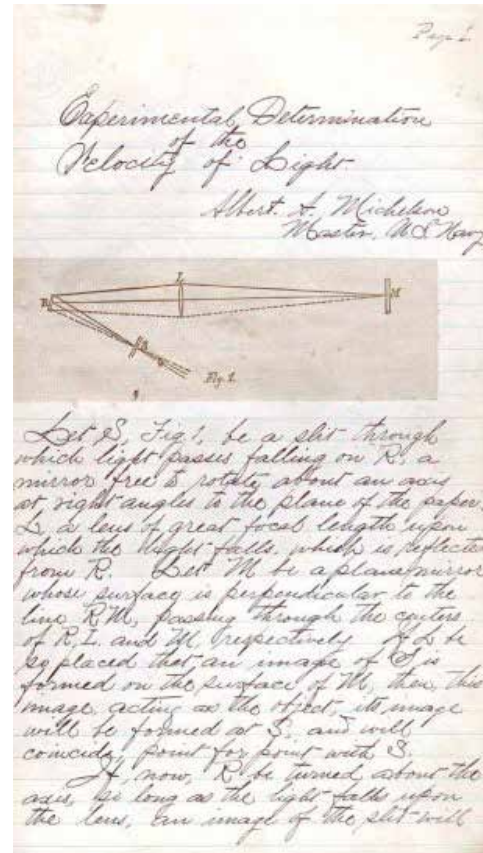 Page 1
Experimental Determination
of the
Velocity of Light.
Albert. A. Michelson
Master, U.S. Navy
R
L
M
S
Fig. 1.
Let S, Fig 1, be a slit through
which light passes falling on R, a
mirror free to rotate about an axis
at right angles to the plane of the paper.
L a lens of great focal length upon
which the light falls which is reflected
from R. Let M be a plane mirror
whose surface is perpendicular to the
line R.M, passing through the centers
of R, L and M, respectively. If L be
so placed that an image of S is
formed on the surface of M, then, this
image acting as the object, its image
will be formed at S, and will
coincide, point for point with S.
If, now, R be turned about the
axis, so long as the light falls upon
the lens, an image of the slit will